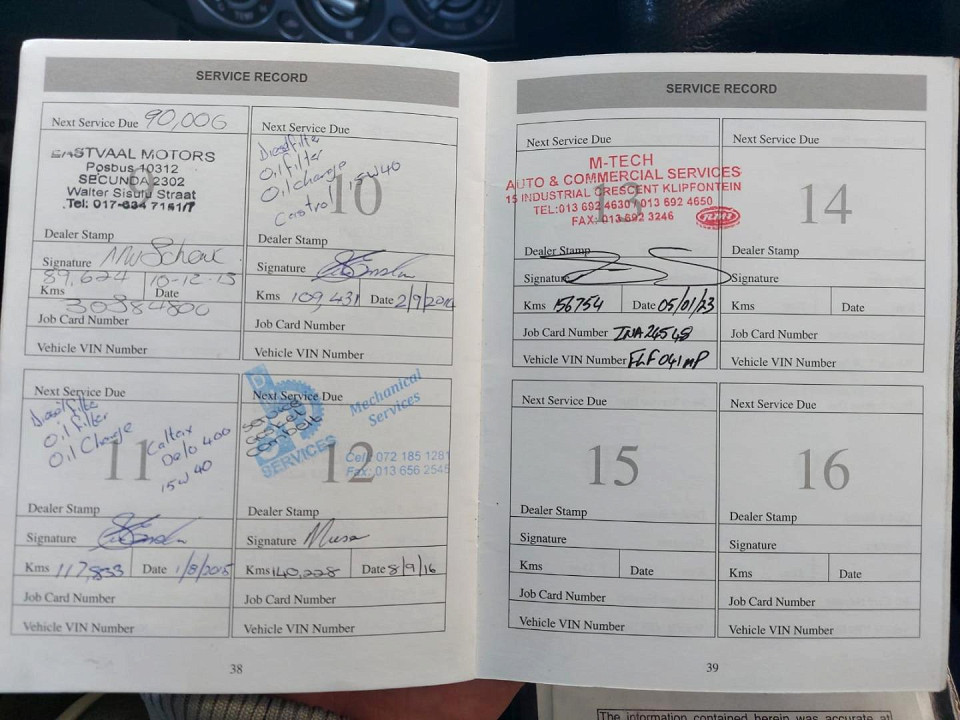 SERVICE RECORD
Next Service Due 90,006
EASTVAAL MOTORS
Posbus 10312
SECUNDA 2302
Walter Sisulu Straat
Tel: 017-634 7151/7
9
Dealer Stamp
Signature
89,624 10-12-13
Kms Date
30384800
Job Card Number
Vehicle VIN Number
Next Service Due
Diesel filter
Oil filter
Oil change 15W40
Castrol
10
Dealer Stamp
Signature
Kms 109 431 Date 2/9/2014
Job Card Number
Vehicle VIN Number
Next Service Due
Diesel filter
Oil filter
Oil Change
Caltex
Delo 400
15W 40
11
Dealer Stamp
Signature
Kms 117,833 Date 1/8/2015
Job Card Number
Vehicle VIN Number
Next Service Due
Service
Gasket
Cambelt
SERVICES
Mechanical
Services
Cell: 072 185 1281
Fax: 013 656 2545
12
Dealer Stamp
Signature Musa
Kms 140,228 Date 8/9/16
Job Card Number
Vehicle VIN Number
38
SERVICE RECORD
Next Service Due
M-TECH
AUTO & COMMERCIAL SERVICES
15 INDUSTRIAL CRESCENT KLIPFONTEIN
TEL:013 692 4630 / 013 692 4650
FAX: 013 692 3246
13
Dealer Stamp
Signature
Kms 156754 Date 05/01/23
Job Card Number INA26548
Vehicle VIN Number FLF041MP
Next Service Due
14
Dealer Stamp
Signature
Kms Date
Job Card Number
Vehicle VIN Number
Next Service Due
15
Dealer Stamp
Signature
Kms Date
Job Card Number
Vehicle VIN Number
Next Service Due
16
Dealer Stamp
Signature
Kms Date
Job Card Number
Vehicle VIN Number
39
The information contained herein was accurate at